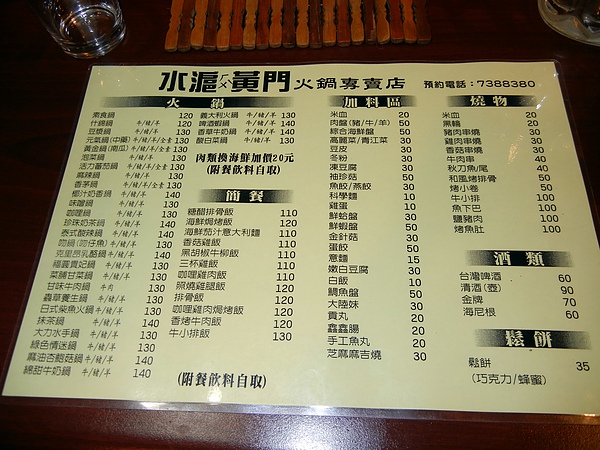 水滬ㄏㄨ黃門火鍋專賣店 預約電話：7388380
火鍋
素食鍋 120
什錦鍋 牛/豬/羊 120
豆漿鍋 牛/豬/羊 130
元氣鍋(中藥) 牛/豬/羊/全素 130
黃金鍋(南瓜) 牛/豬/羊/全素 130
泡菜鍋 牛/豬/羊 130
活力蕃茄鍋 牛/豬/羊/全素 130
麻辣鍋 牛/豬/羊 130
香茅鍋 牛/豬/羊/全素 130
椰汁奶香鍋 牛/豬/羊 130
味噌鍋 牛/豬/羊 130
咖哩鍋 牛/豬/羊 130
珍珠奶茶鍋 牛/豬/羊 130
泰式酸辣鍋 牛/豬/羊 130
吻鍋(吻仔魚) 牛/豬/羊 130
克里昂乳酪鍋 牛/豬/羊 130
福圓貴妃鍋 牛/豬/羊 130
菜脯甘菜鍋 牛/豬/羊 130
甘味牛肉鍋 牛肉 130
蟲草養生鍋 牛/豬/羊 130
日式柴魚火鍋 牛/豬/羊 130
抹茶鍋 牛/豬/羊 140
大力水手鍋 牛/豬/羊 130
綠色情迷鍋 牛/豬/羊 130
麻油杏鮑菇鍋 牛/豬/羊 140
綿甜牛奶鍋 牛/豬/羊 140
義大利火鍋 牛/豬/羊 130
啤酒蝦鍋 牛/豬/羊 140
香草牛奶鍋 牛/豬/羊 140
酸白菜鍋 牛/豬/羊 130
肉類換海鮮加價20元
(附餐飲料自取)
簡餐
糖醋排骨飯 110
海鮮焗烤飯 120
海鮮茄汁意大利麵 110
香菇雞飯 110
黑胡椒牛柳飯 110
三杯雞飯 110
咖哩雞肉飯 110
照燒雞腿飯 120
排骨飯 120
咖哩雞肉焗烤飯 120
香烤牛肉飯 120
牛小排飯 130
(附餐飲料自取)
加料區
米血 20
肉盤(豬/牛/羊) 50
綜合海鮮盤 50
高麗菜/青江菜 30
豆皮 30
冬粉 30
凍豆腐 30
袖珍菇 50
魚餃/燕餃 30
科學麵 10
雞蛋 10
鮮蛤盤 30
鮮蝦盤 50
金針菇 30
蛋餃 30
意麵 15
嫩白豆腐 30
白飯 10
鯛魚盤 50
大陸妹 30
貢丸 20
鑫鑫腸 20
手工魚丸 20
芝麻麻吉燒 30
燒物
米血 20
黑輪 20
豬肉串燒 30
雞肉串燒 30
香菇串燒 50
牛肉串 40
秋刀魚/尾 40
和風烤排骨 50
烤小卷 50
牛小排 100
魚下巴 50
鹽豬肉 100
烤魚肚 100
酒類
台灣啤酒 60
清酒(壺) 90
金牌 70
海尼根 60
鬆餅
鬆餅 35
(巧克力/蜂蜜)